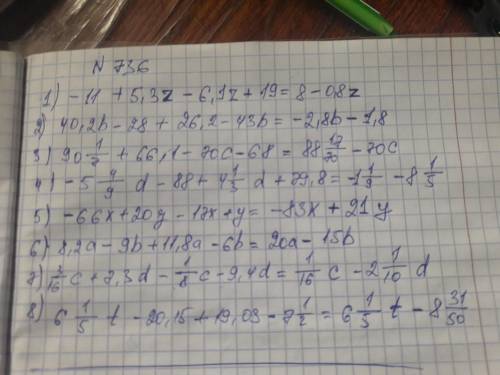 N 736
1) -11 + 5,3z - 6,1z + 19 = 8 - 0,8z
2) 40,2b - 28 + 26,2 - 43b = -2,8b - 1,8
3) 90 1/7 + 66,1 - 70c - 68 = 88 17/70 - 70c
4) -5 4/9 d - 88 + 4 1/3 d + 79,8 = -1 1/9 - 8 1/5
5) -66x + 20y - 17x + y = -83x + 21y
6) 8,2a - 9b + 11,8a - 6b = 20a - 15b
7) 3/16 c + 7,3d - 1/8 c - 9,4d = 1/16 c - 2 1/10 d
8) 6 1/5 t - 20,15 + 19,03 - 7 1/2 = 6 1/5 t - 8 31/50